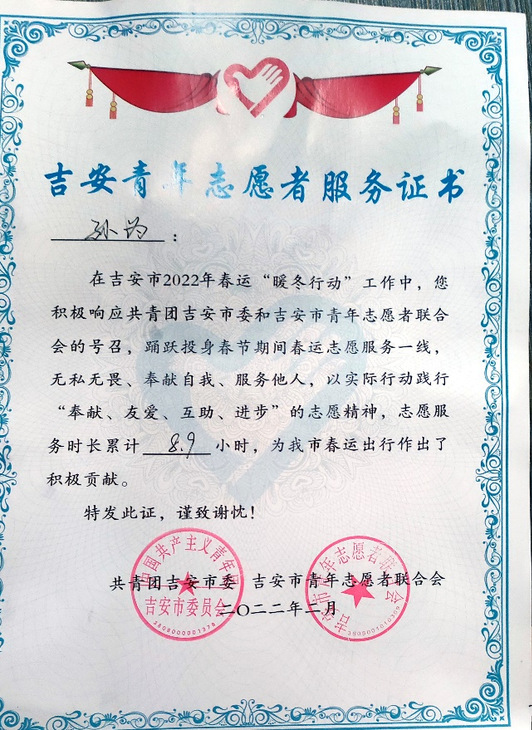 吉安青年志愿者服务证书
孙为：
在吉安市2022年春运“暖冬行动”工作中，您
积极响应共青团吉安市委和吉安市青年志愿者联合
会的号召，踊跃投身春节期间春运志愿服务一线，
无私无畏、奉献自我、服务他人，以实际行动践行
“奉献、友爱、互助、进步”的志愿精神，志愿服
务时长累计 8.9 小时，为我市春运出行作出了
积极贡献。
特发此证，谨致谢忱！
共青团吉安市委 吉安市青年志愿者联合会
二〇二二年二月
中国共产主义青年团
吉安市委员会
吉安市青年志愿者联合会